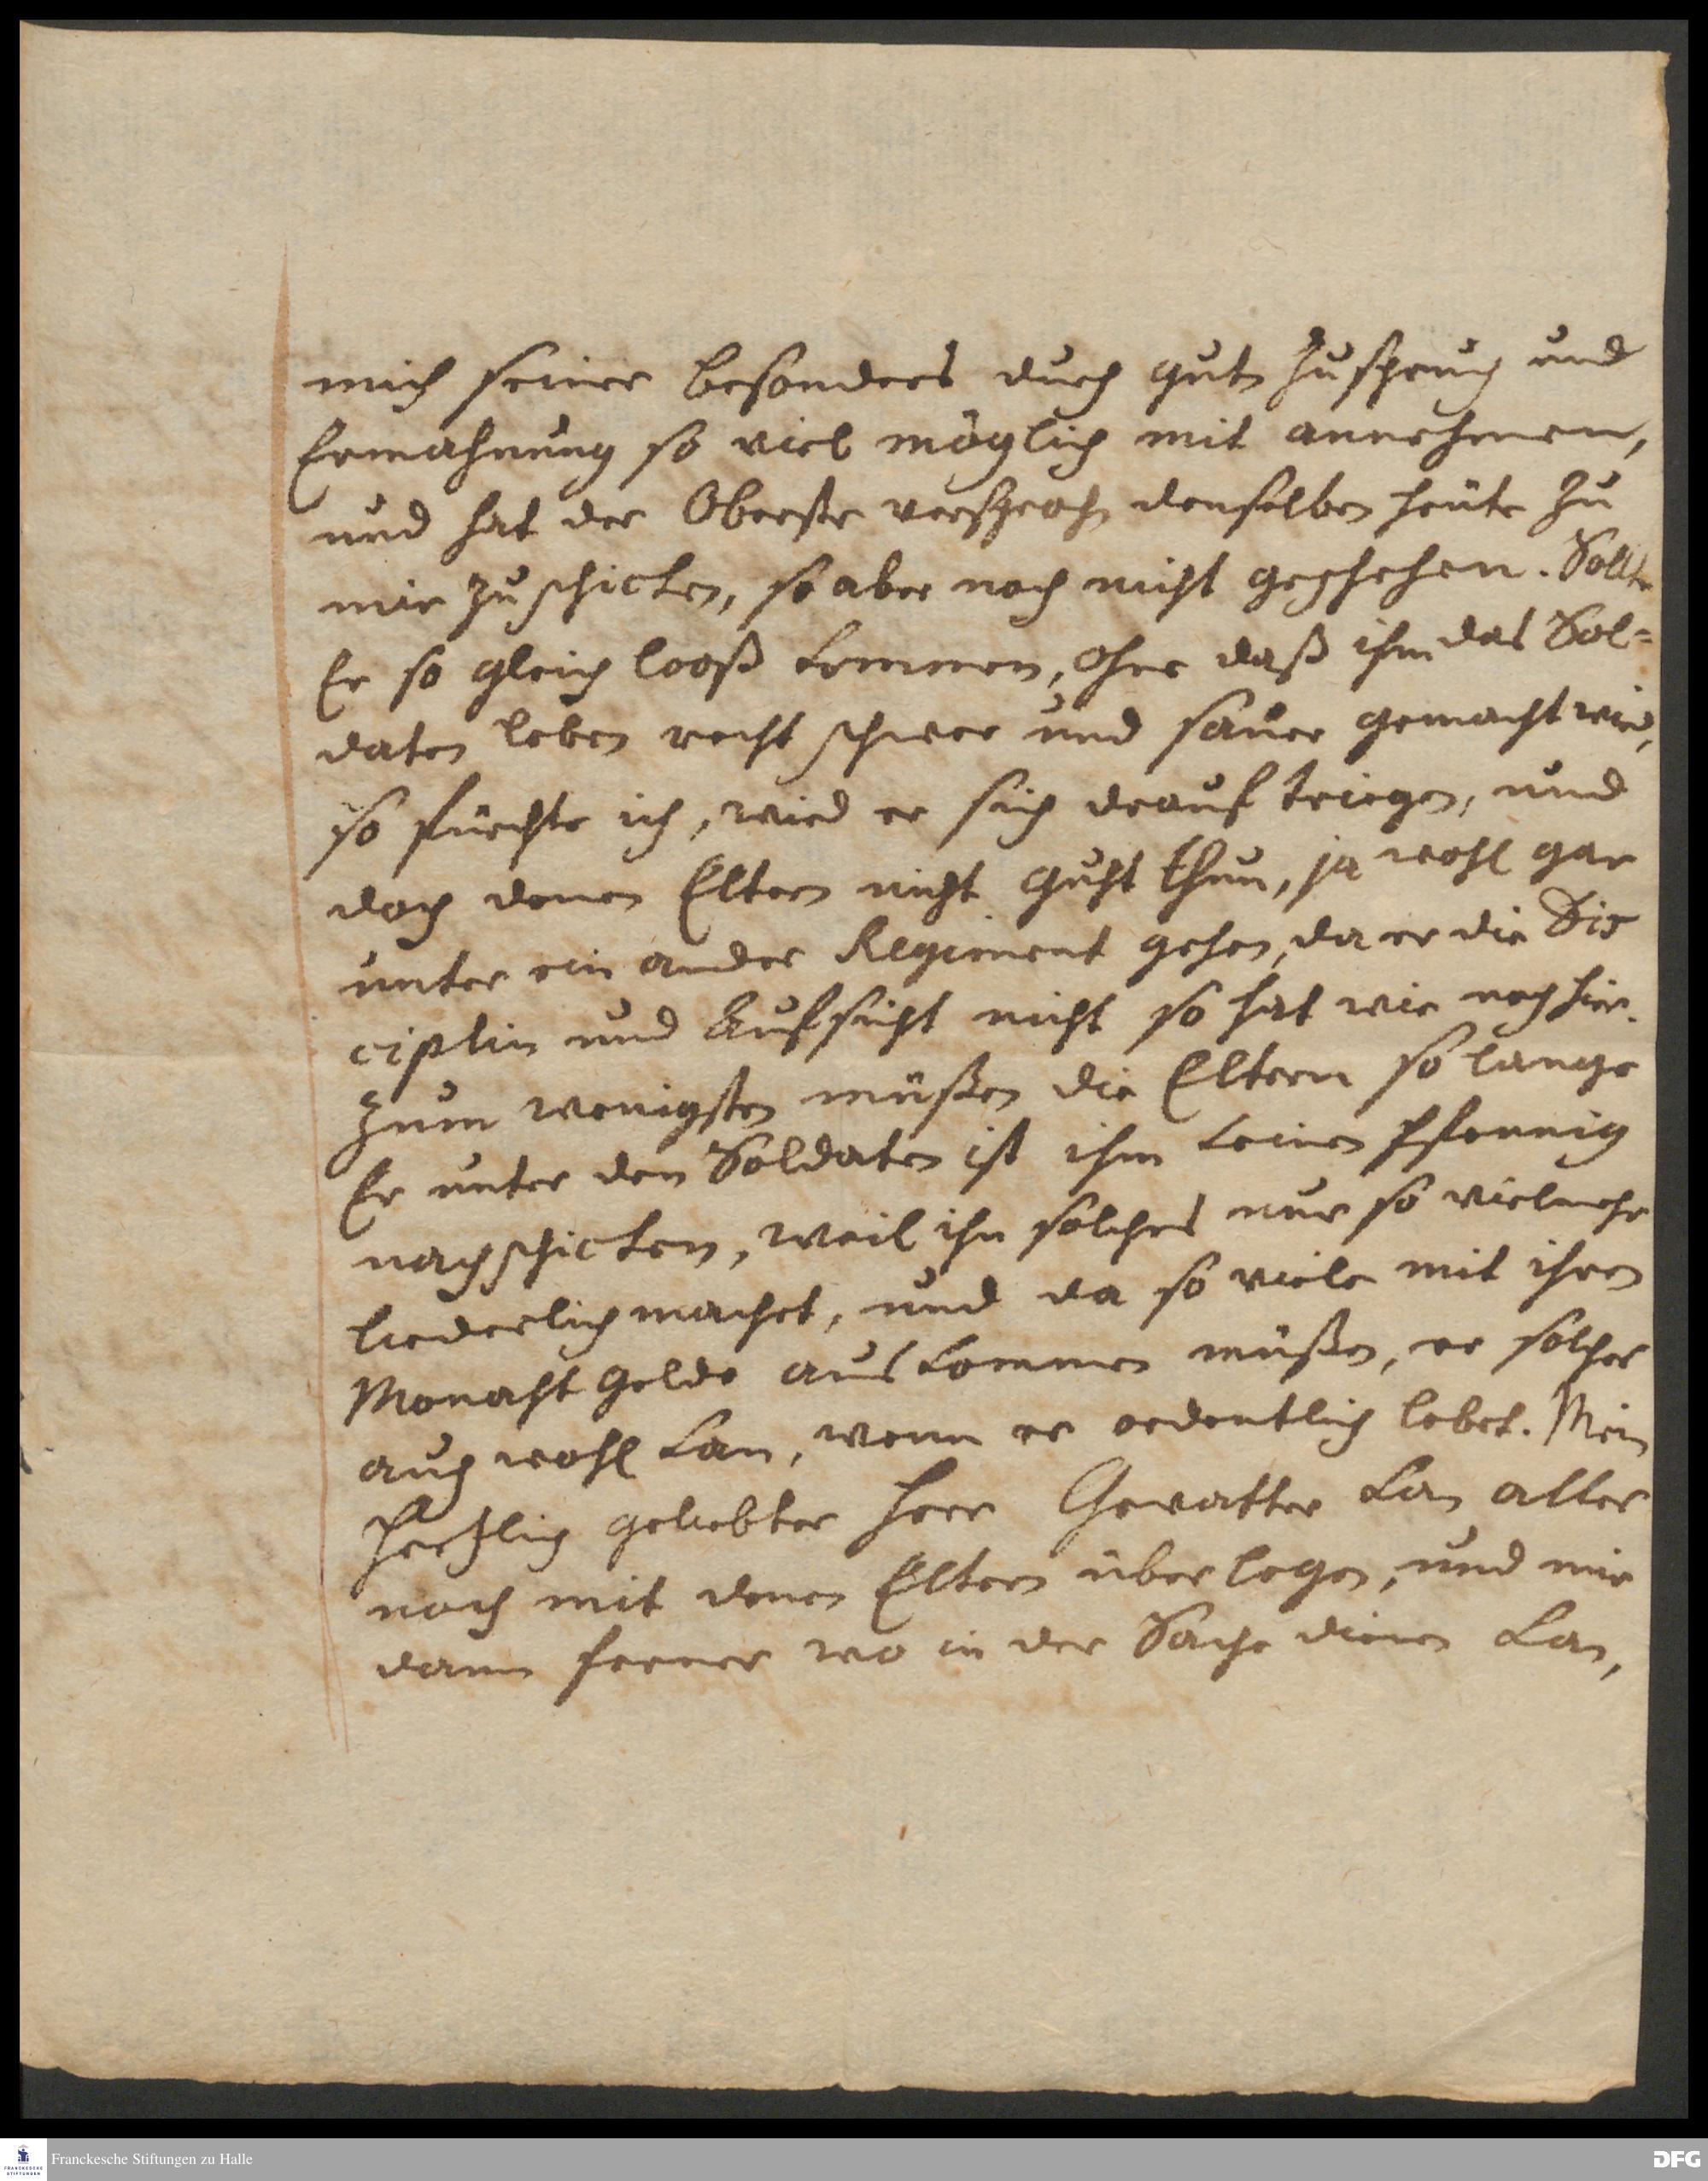 mich seiner besonders durch guten Zuspruch und
Ermahnung so viel möglich mit annehmen,
und hat der Oberste versprochen denselben heüte zu
mir zu schicken, so aber noch nicht geschehen. Sollte
Er so gleich looß kommen, ohne daß ihm das Sol=
daten leben recht schwer und sauer gemacht wird,
so fürchte ich, wird er sich drauf kriegen, und
doch denen Eltern nicht guht thun, ja wohl gar
unter ein ander Regiment gehen, da er die Dis
ciplin und Aufsicht nicht so hat wie noch hier.
Zum wenigsten müßen die Eltern so lange
Er unter den Soldaten ist ihm keinen Pfennig
nachschicken, weil ihn solches nur so vielmehr
liederlich machet, und da so viele mit ihren
Monaht Gelde auskommen müßen, er solches
auch wohl kan, wenn er ordentlich lebet. Mein
Hertzlich geliebter Herr Gevatter kan alles
noch mit denen Eltern überlegen, und mir
dann ferner wo in der Sache dienen kan,
Franckesche Stiftungen zu Halle
FRANCKESCHE
STIFTUNGEN
DFG